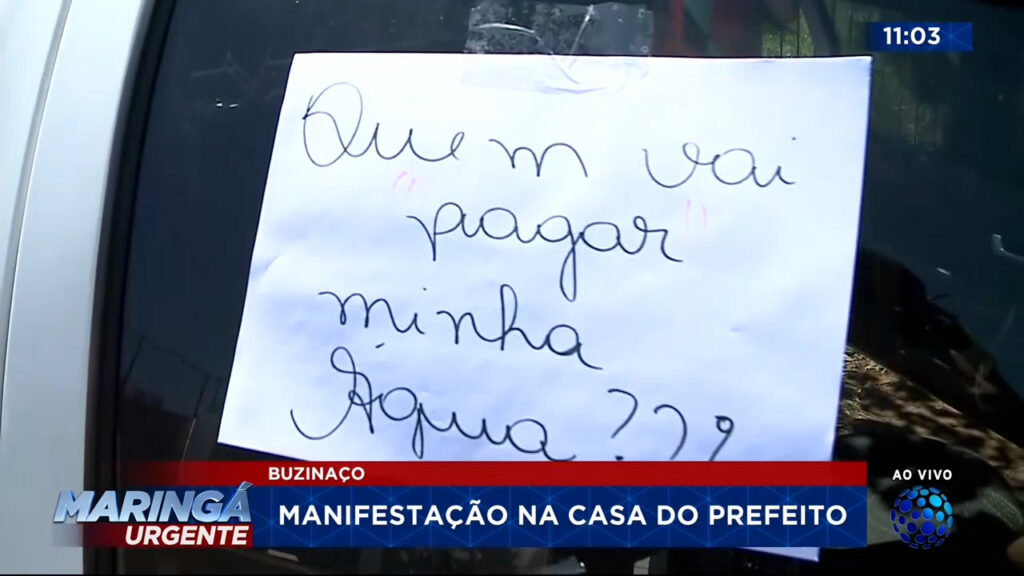 11:03
Quem vai
"pagar"
minha
Água???
BUZINAÇO
AO VIVO
MARINGÁ
URGENTE
MANIFESTAÇÃO NA CASA DO PREFEITO